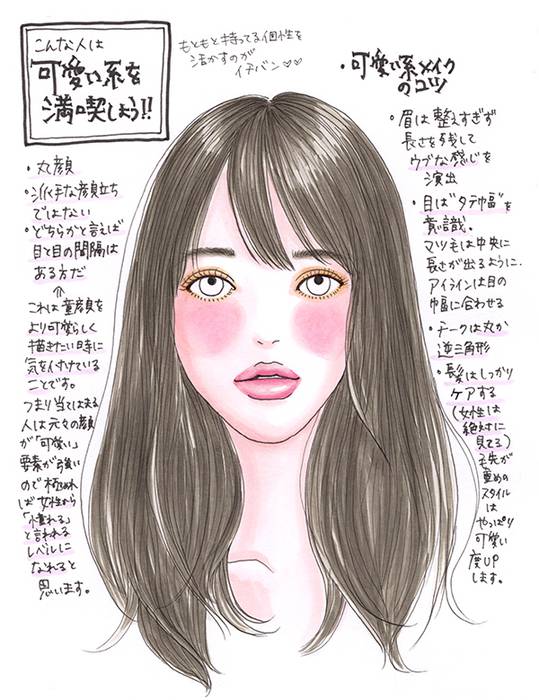 こんな人は
可愛い系を
満喫しよう!!
もともと持ってる個性を
活かすのが
イチバン♡♡
・可愛い系メイク
のコツ
・丸顔
・派手な顔立ち
ではない
・どちらかと言えば
目と目の間隔は
ある方だ
⇑
これは童顔を
より可愛らしく
描きたい時に
気を付けている
ことです。
つまり当てはまる
人は元々の顔
が「可愛い」
要素が強い
ので極めれ
ば女性から
「憧れる」
と言われる
レベルに
なれると
思います。
・眉は整えすぎず
長さを残して
ウブな感じを
演出
・目は"タテ幅"を
意識。
マツ毛は中央に
長さが出るように.
アイラインは目の
幅に合わせる
・チークは丸か
逆三角形
・髪はしっかり
ケアする
(女性は
絶対に
見てる)
毛先が
重めの
スタイル
は
やっぱり
可愛い
度UP
します。